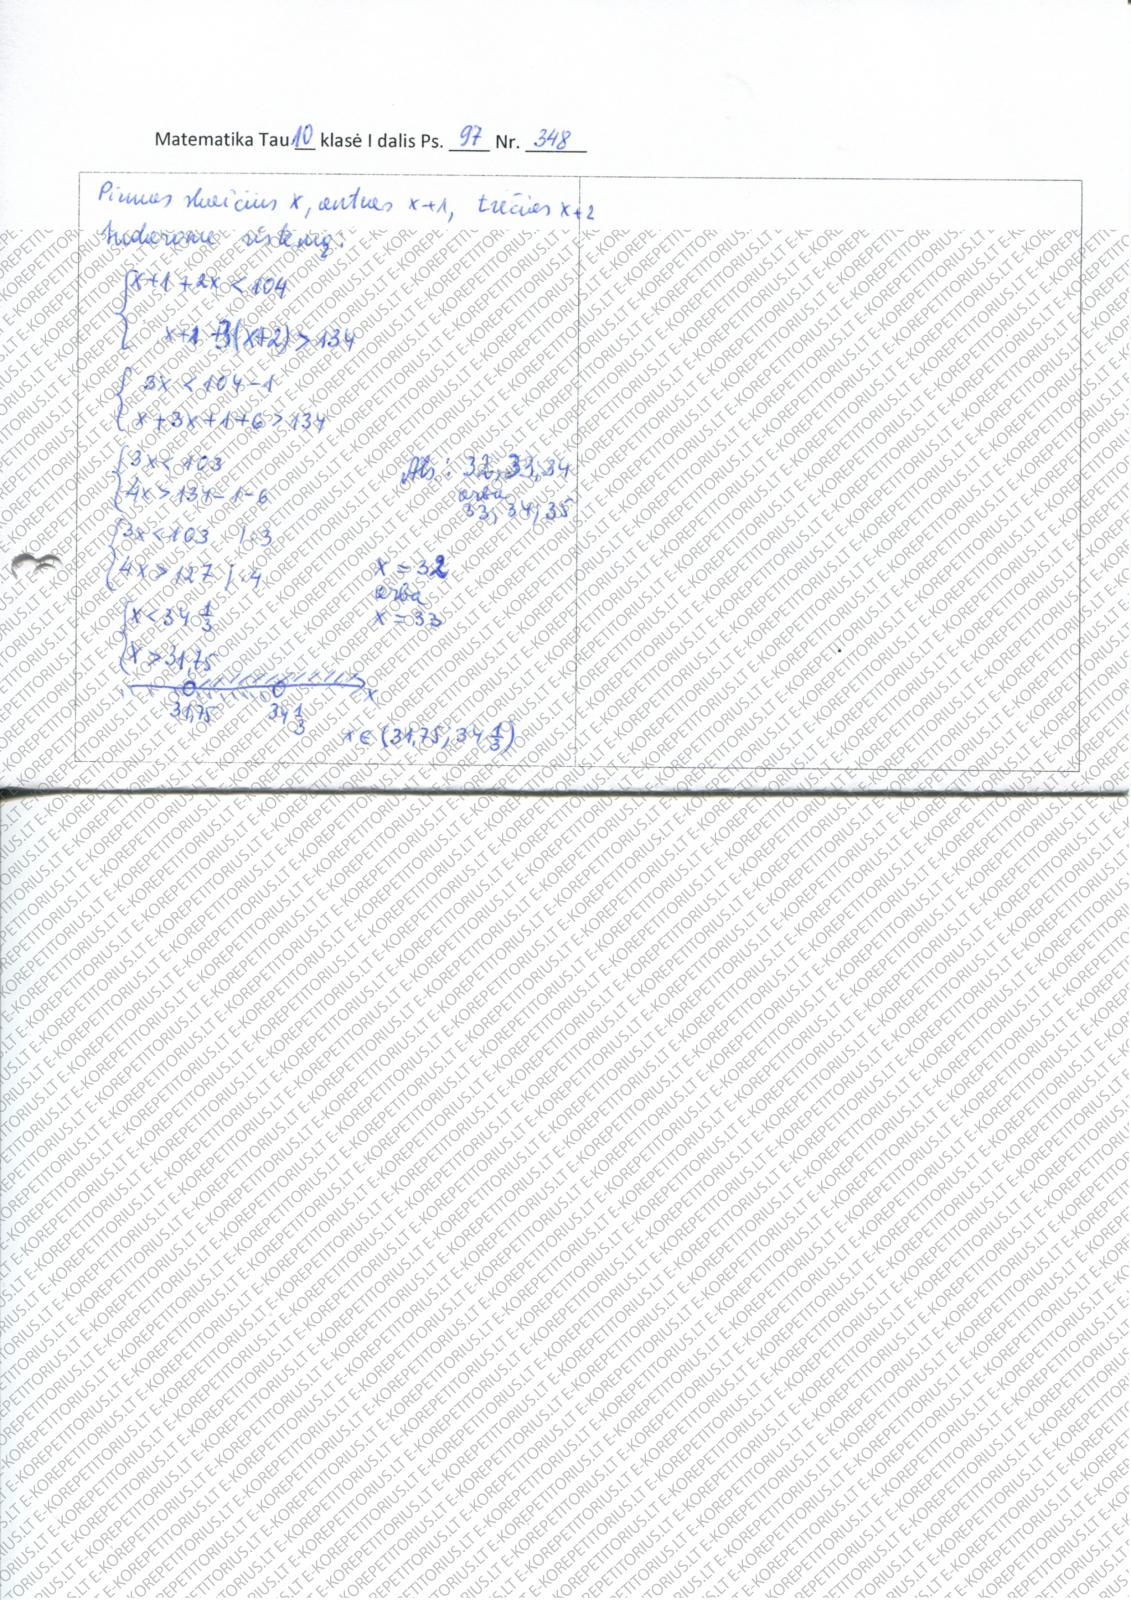 Matematika Tau 10 klasė I dalis Ps. 97 Nr. 348
Pirmas skaičius x, antras x+1, trečias x+2
Sudarome sistemą:
x+1+2x<104
x+1+3(x+2)>134
3x<104-1
x+3x+1+6>134
3x<103
4x>134-1-6
3x<103 |:3
4x>127 |:4
x<34 1/3
x>31,75
31,75 34 1/3 x
x∈(31,75; 34 1/3)
Ats: 32, 33, 34
arba
33, 34, 35
x=32
arba
x=33
E-KOREPETITORIUS.LT